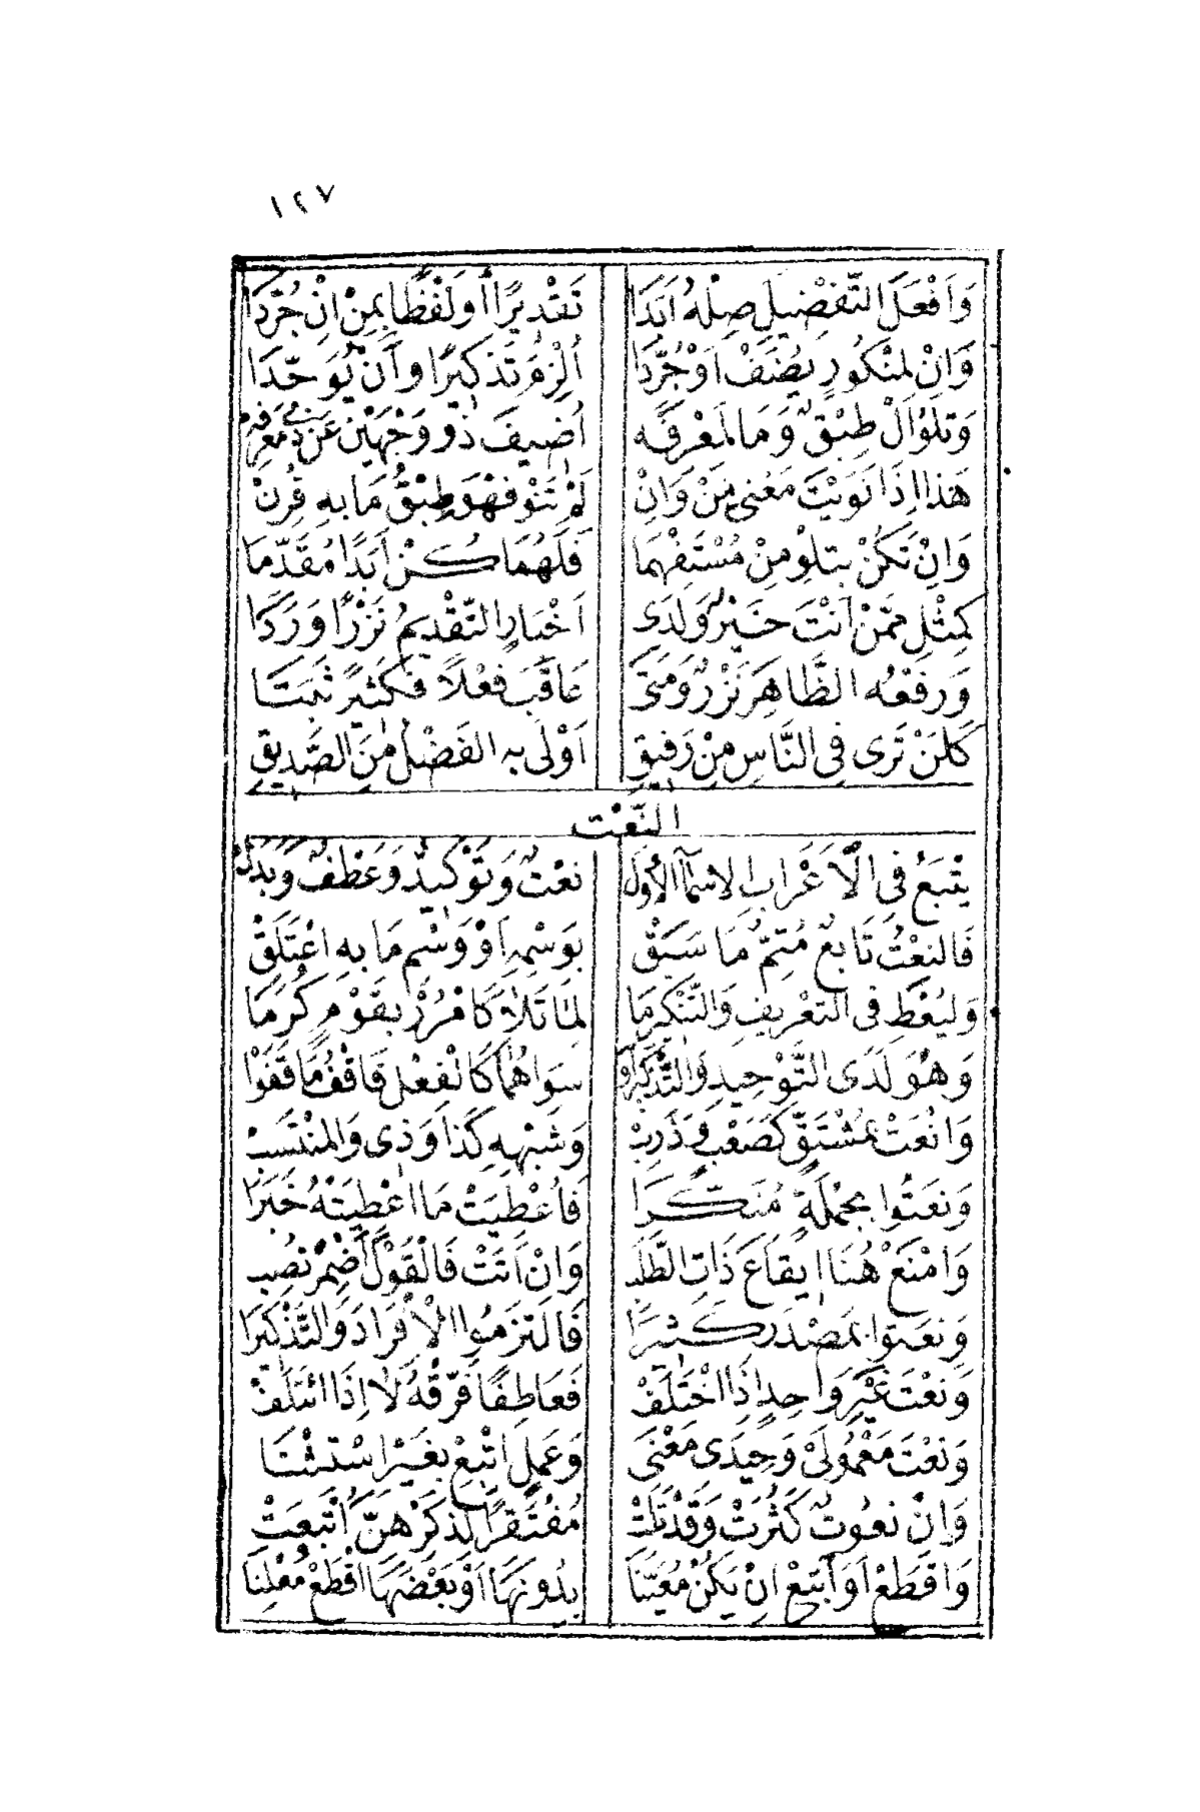 ١٢٧
وَاَفْعَلَ التَّفْضِيلِ صِلْهُ اَبَدَا تَقْدِيرًا اَوْ لَفْظًا بِمِنْ اِنْ جُرِّدَا
وَاِنْ لِمَنْكُورٍ يُضَفْ اَوْ جُرِّدَا اُلْزِمَ تَذْكِيرًا وَاَنْ يُوَحَّدَا
وَتِلْوُ اَلْ طِبْقٌ وَمَا لِمَعْرِفَه اُضِيفَ ذُو وَجْهَيْنِ عَنْ ذِى مَعْرِفَه
هٰذَا اِذَا نَوَيْتَ مَعْنٰى مِنْ وَاِنْ لَمْ تَنْوِ فَهْوَ طِبْقُ مَا بِهِ قُرِنْ
وَاِنْ تَكُنْ بِتِلْوِ مِنْ مُسْتَفْهِمَا فَلَهُمَا كُنْ اَبَدًا مُقَدِّمَا
كَمِثْلِ مِمَّنْ اَنْتَ خَيْرٌ وَلَدَى اِخْبَارٍ التَّقْدِيمُ نَزْرًا وَرَدَا
وَرَفْعُهُ الظَّاهِرَ نَزْرٌ وَمَتَى عَاقَبَ فِعْلًا فَكَثِيرٌ ثَبَتَا
كَلَنْ تَرَى فِى النَّاسِ مِنْ رَفِيقِ اَوْلٰى بِهِ الفَضْلُ مِنَ الصِّدِّيقِ
النَّعْت
يَتْبَعُ فِى الْاَعْرَابِ الاَسْمَآءَ الْاُوَلْ نَعْتٌ وَتَوْكِيدٌ وَعَطْفٌ وَبَدَلْ
فَالنَعْتُ تَابِعٌ مُتِمٌّ مَا سَبَقْ بِوَسْمِهِ اَوْ وَسْمِ مَا بِهِ اعْتَلَقْ
وَليُعْطَ فِى التَعْرِيفِ وَالتَّنْكِيرِ مَا لِمَا تَلَا كَامْرُرْ بِقَوْمٍ كُرَمَا
وَهْوَ لَدَى التَّوْحِيدِ وَالتَّذْكِيرِ اَوْ سِوَاهُمَا كَالْفِعْلِ فَاقْفُ مَا قَفَوْا
وَانْعَتْ بِمُشْتَقٍّ كَصَعْبٍ وَذَرِبْ وَشَبْهِهِ كَذَا وَذِى وَالمُنْتَسِبْ
وَنَعَتُوا بِجُمْلَةٍ مُنَكَّرَا فَاُعْطِيَتْ مَا اُعْطِيَتْهُ خَبَرَا
وَامْنَعْ هُنَا اِيقَاعَ ذَاتِ الطَّلَبِ وَاِنْ اَتَتْ فَالْقَوْلَ اَضْمِرْ تُصِبِ
وَنَعَتُوا بِمَصْدَرٍ كَثِيرَا فَالتَزَمُوا الْاِفْرَادَ وَالتَّذْكِيرَا
وَنَعْتَ غَيْرِ وَاحِدٍ اِذَا اخْتَلَفْ فَعَاطِفًا فَرِّقْهُ لَا اِذَا ائْتَلَفْ
وَنَعْتَ مَعْمُولَىْ وَحِيدَى مَعْنَى وَعَمَلٍ اَتْبِعْ بِغَيْرِ اسْتِثْنَا
وَاِنْ نُعُوتٌ كَثُرَتْ وَقَدْ تَلَتْ مُفْتَقِرًا لِذِكْرِهِنَّ اُتْبِعَتْ
وَاقْطَعْ اَوَ اَتْبِعْ اِنْ يَكُنْ مُعَيَّنَا بِدُونِهَا اَوْ بَعْضَهَا اقْطَعْ مُعْلِنَا